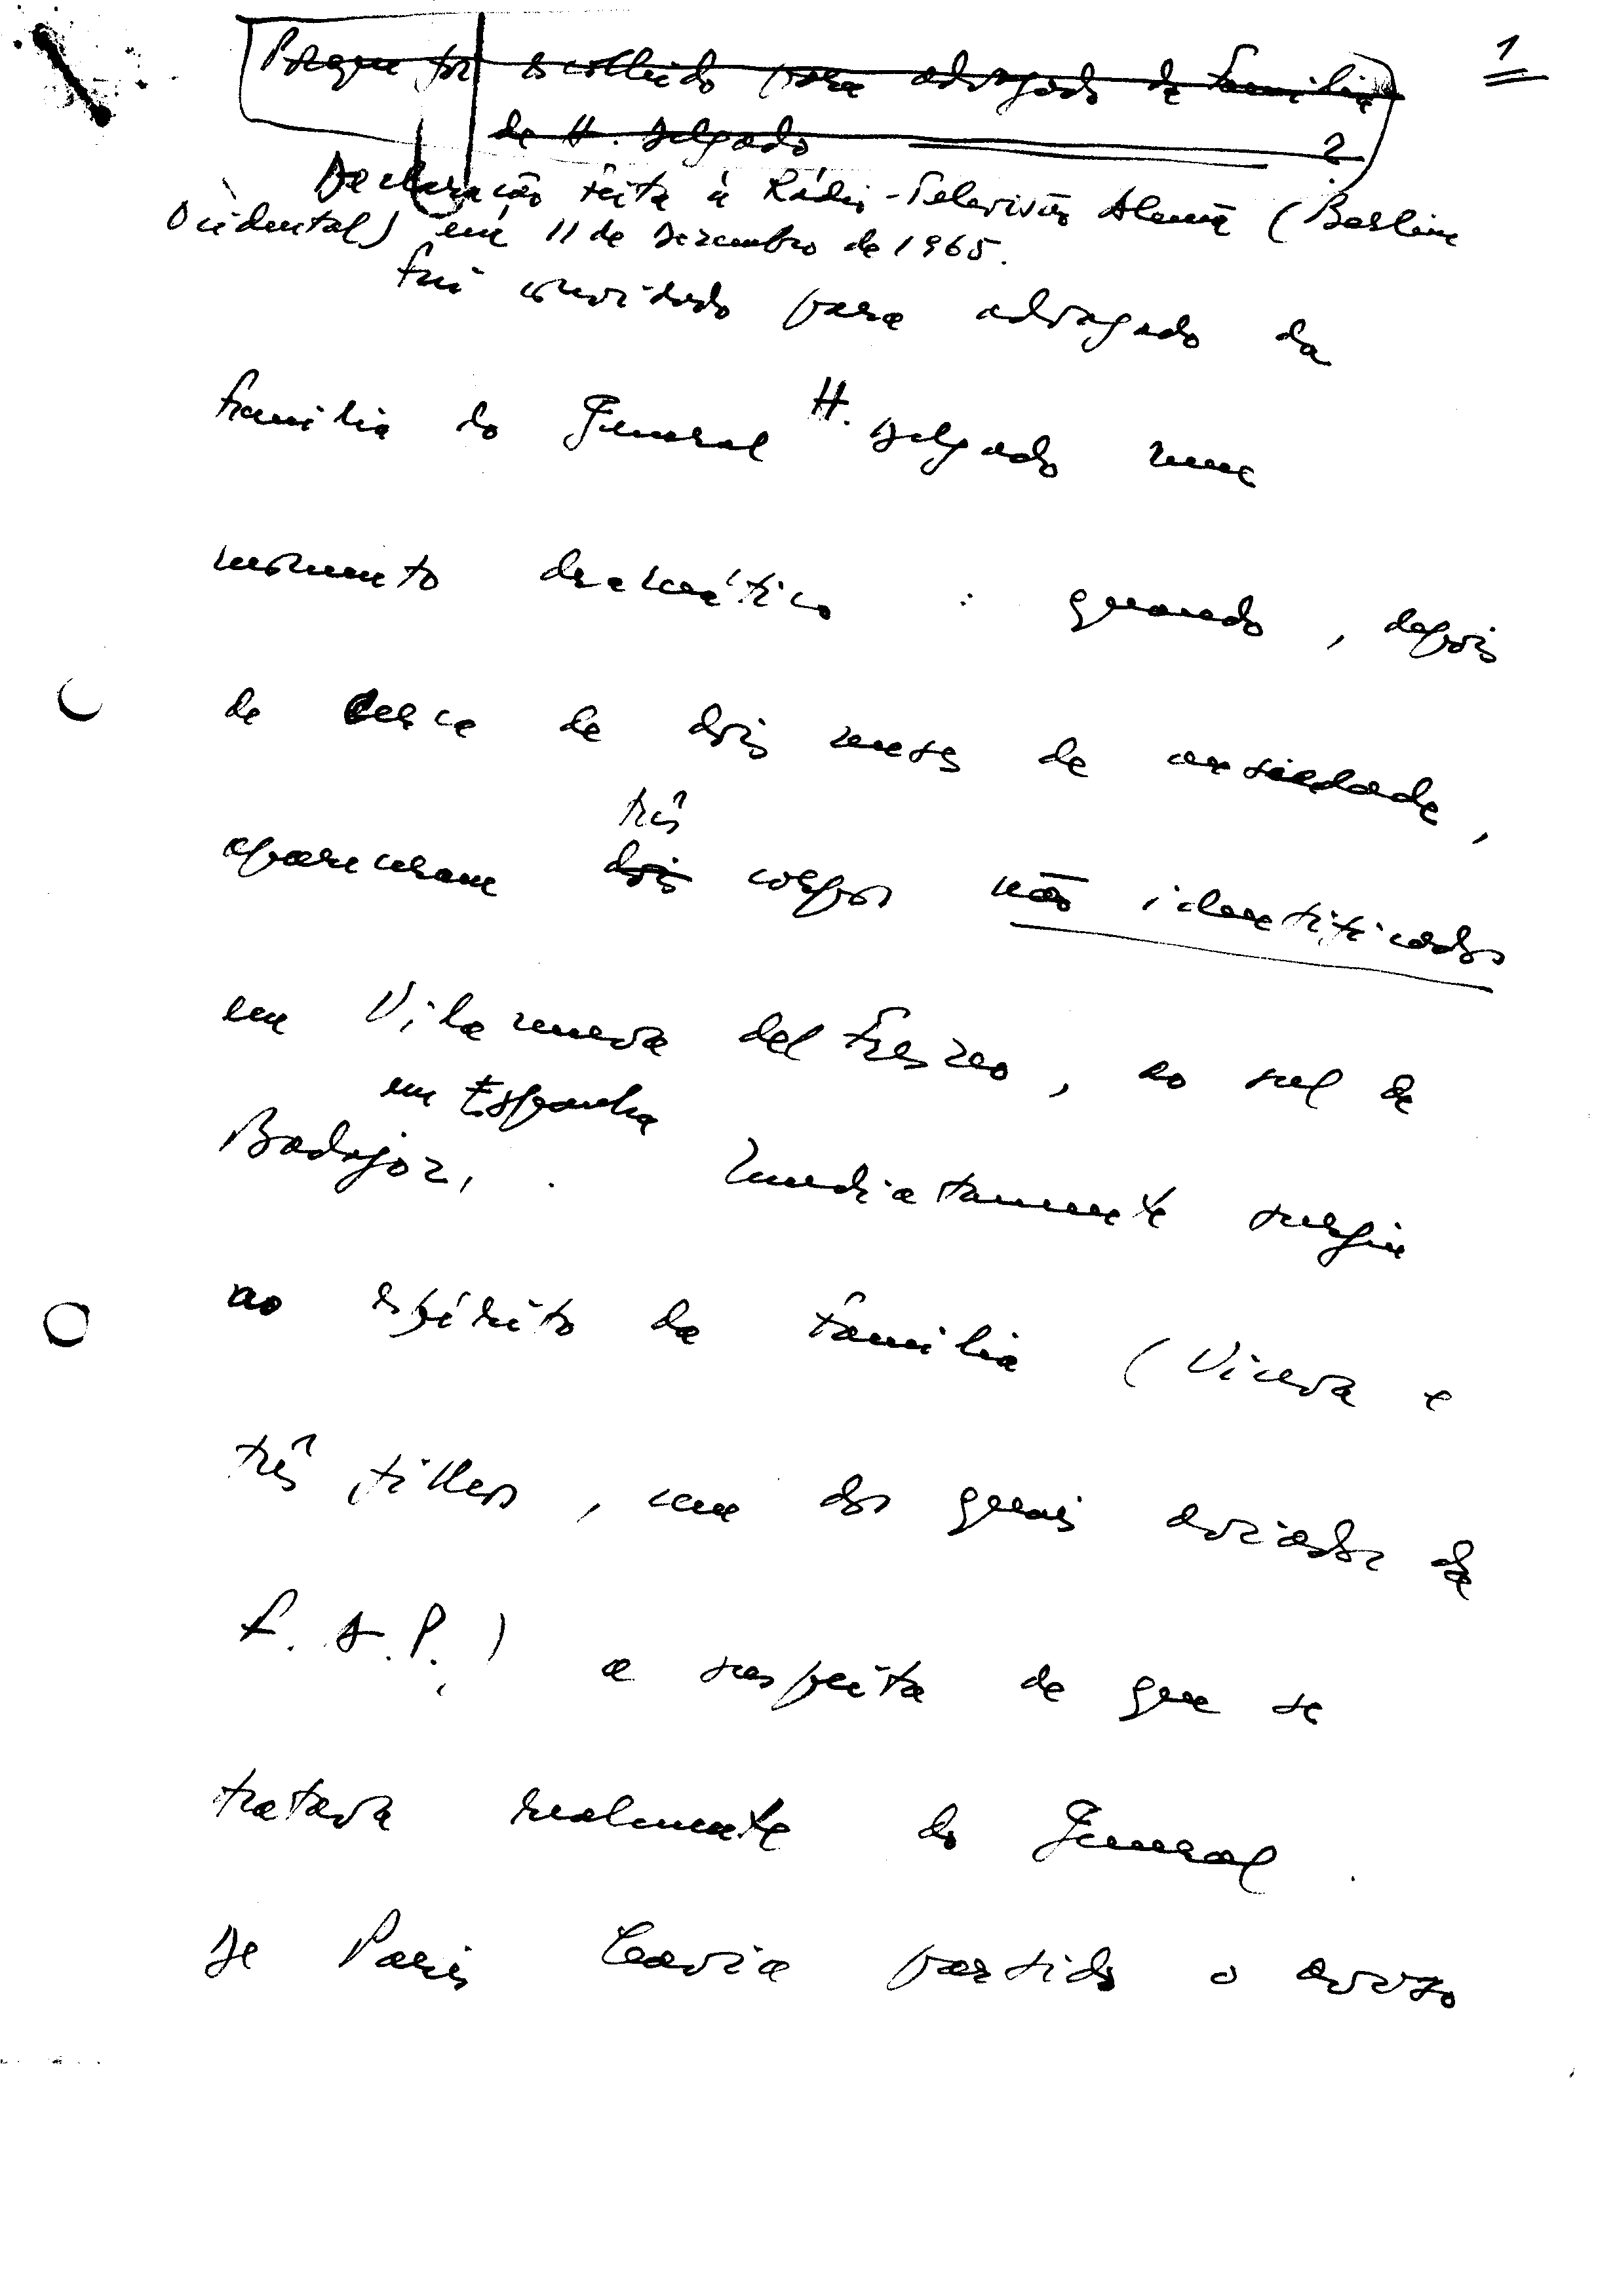 1
Porque foi escolhido para advogado da família
de H. Delgado ?
Declaração feita à Rádio-Televisão Alemã (Berlim
Ocidental) em 11 de Dezembro de 1965.
Fui convidado para advogado da
família do General H. Delgado num
momento dramático : quando, depois
de cerca de dois meses de ansiedade,
apareceram dois três corpos não identificados
em Vilanueva del Fresno, ao sul de
Badajoz, em Espanha. Imediatamente surgiu
ao espírito da família (Viúva e
três filhos, um dos quais aviador da
F.A.P.) a suspeita de que se
tratava realmente do General.
De Paris havia partido o aviso